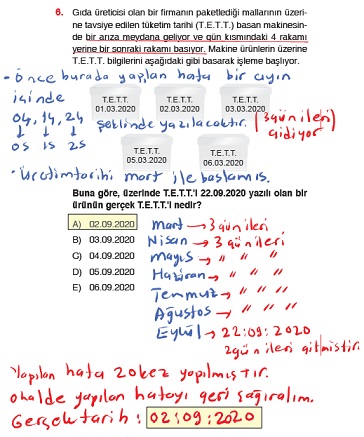 6. Gıda üreticisi olan bir firmanın paketlediği mallarının üzeri-
ne tavsiye edilen tüketim tarihi (T.E.T.T.) basan makinesin-
de bir arıza meydana geliyor ve gün kısmındaki 4 rakamı
yerine bir sonraki rakamı basıyor. Makine ürünlerin üzerine
T.E.T.T. bilgilerini aşağıdaki gibi basarak işleme başlıyor.
• Önce burada yapılan hata bir ayın
içinde
T.E.T.T.
01.03.2020
T.E.T.T.
02.03.2020
T.E.T.T.
03.03.2020
04, 14, 24
↓ ↓ ↓
05 15 25
şeklinde yazılacaktır. (3gün ileri
gidiyor
T.E.T.T.
05.03.2020
T.E.T.T.
06.03.2020
• Üretim tarihi mart ile başlamış.
Buna göre, üzerinde T.E.T.T.'i 22.09.2020 yazılı olan bir
ürünün gerçek T.E.T.T.'i nedir?
A) 02.09.2020
B) 03.09.2020
C) 04.09.2020
D) 05.09.2020
E) 06.09.2020
Mart → 3 gün ileri
Nisan → 3 gün ileri
Mayıs → " " "
Haziran → " " "
Temmuz → " " "
Ağustos → " " "
Eylül → 22:09:2020
2gün ileri gitmiştir
Yapılan hata 20 kez yapılmıştır.
Ohalde yapılan hatayı geri sağıralım.
Gerçek tarih : 02:09:2020